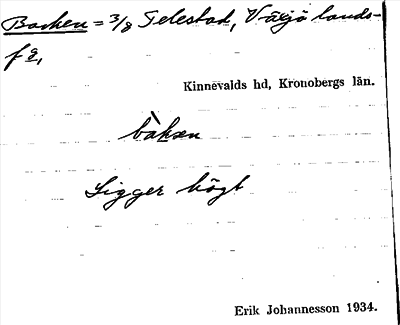 Backen = 3/8 Telestad, Växjö lands-
fg,
Kinnevalds hd, Kronobergs län.
bàkən
Ligger högt
Erik Johannesson 1934.